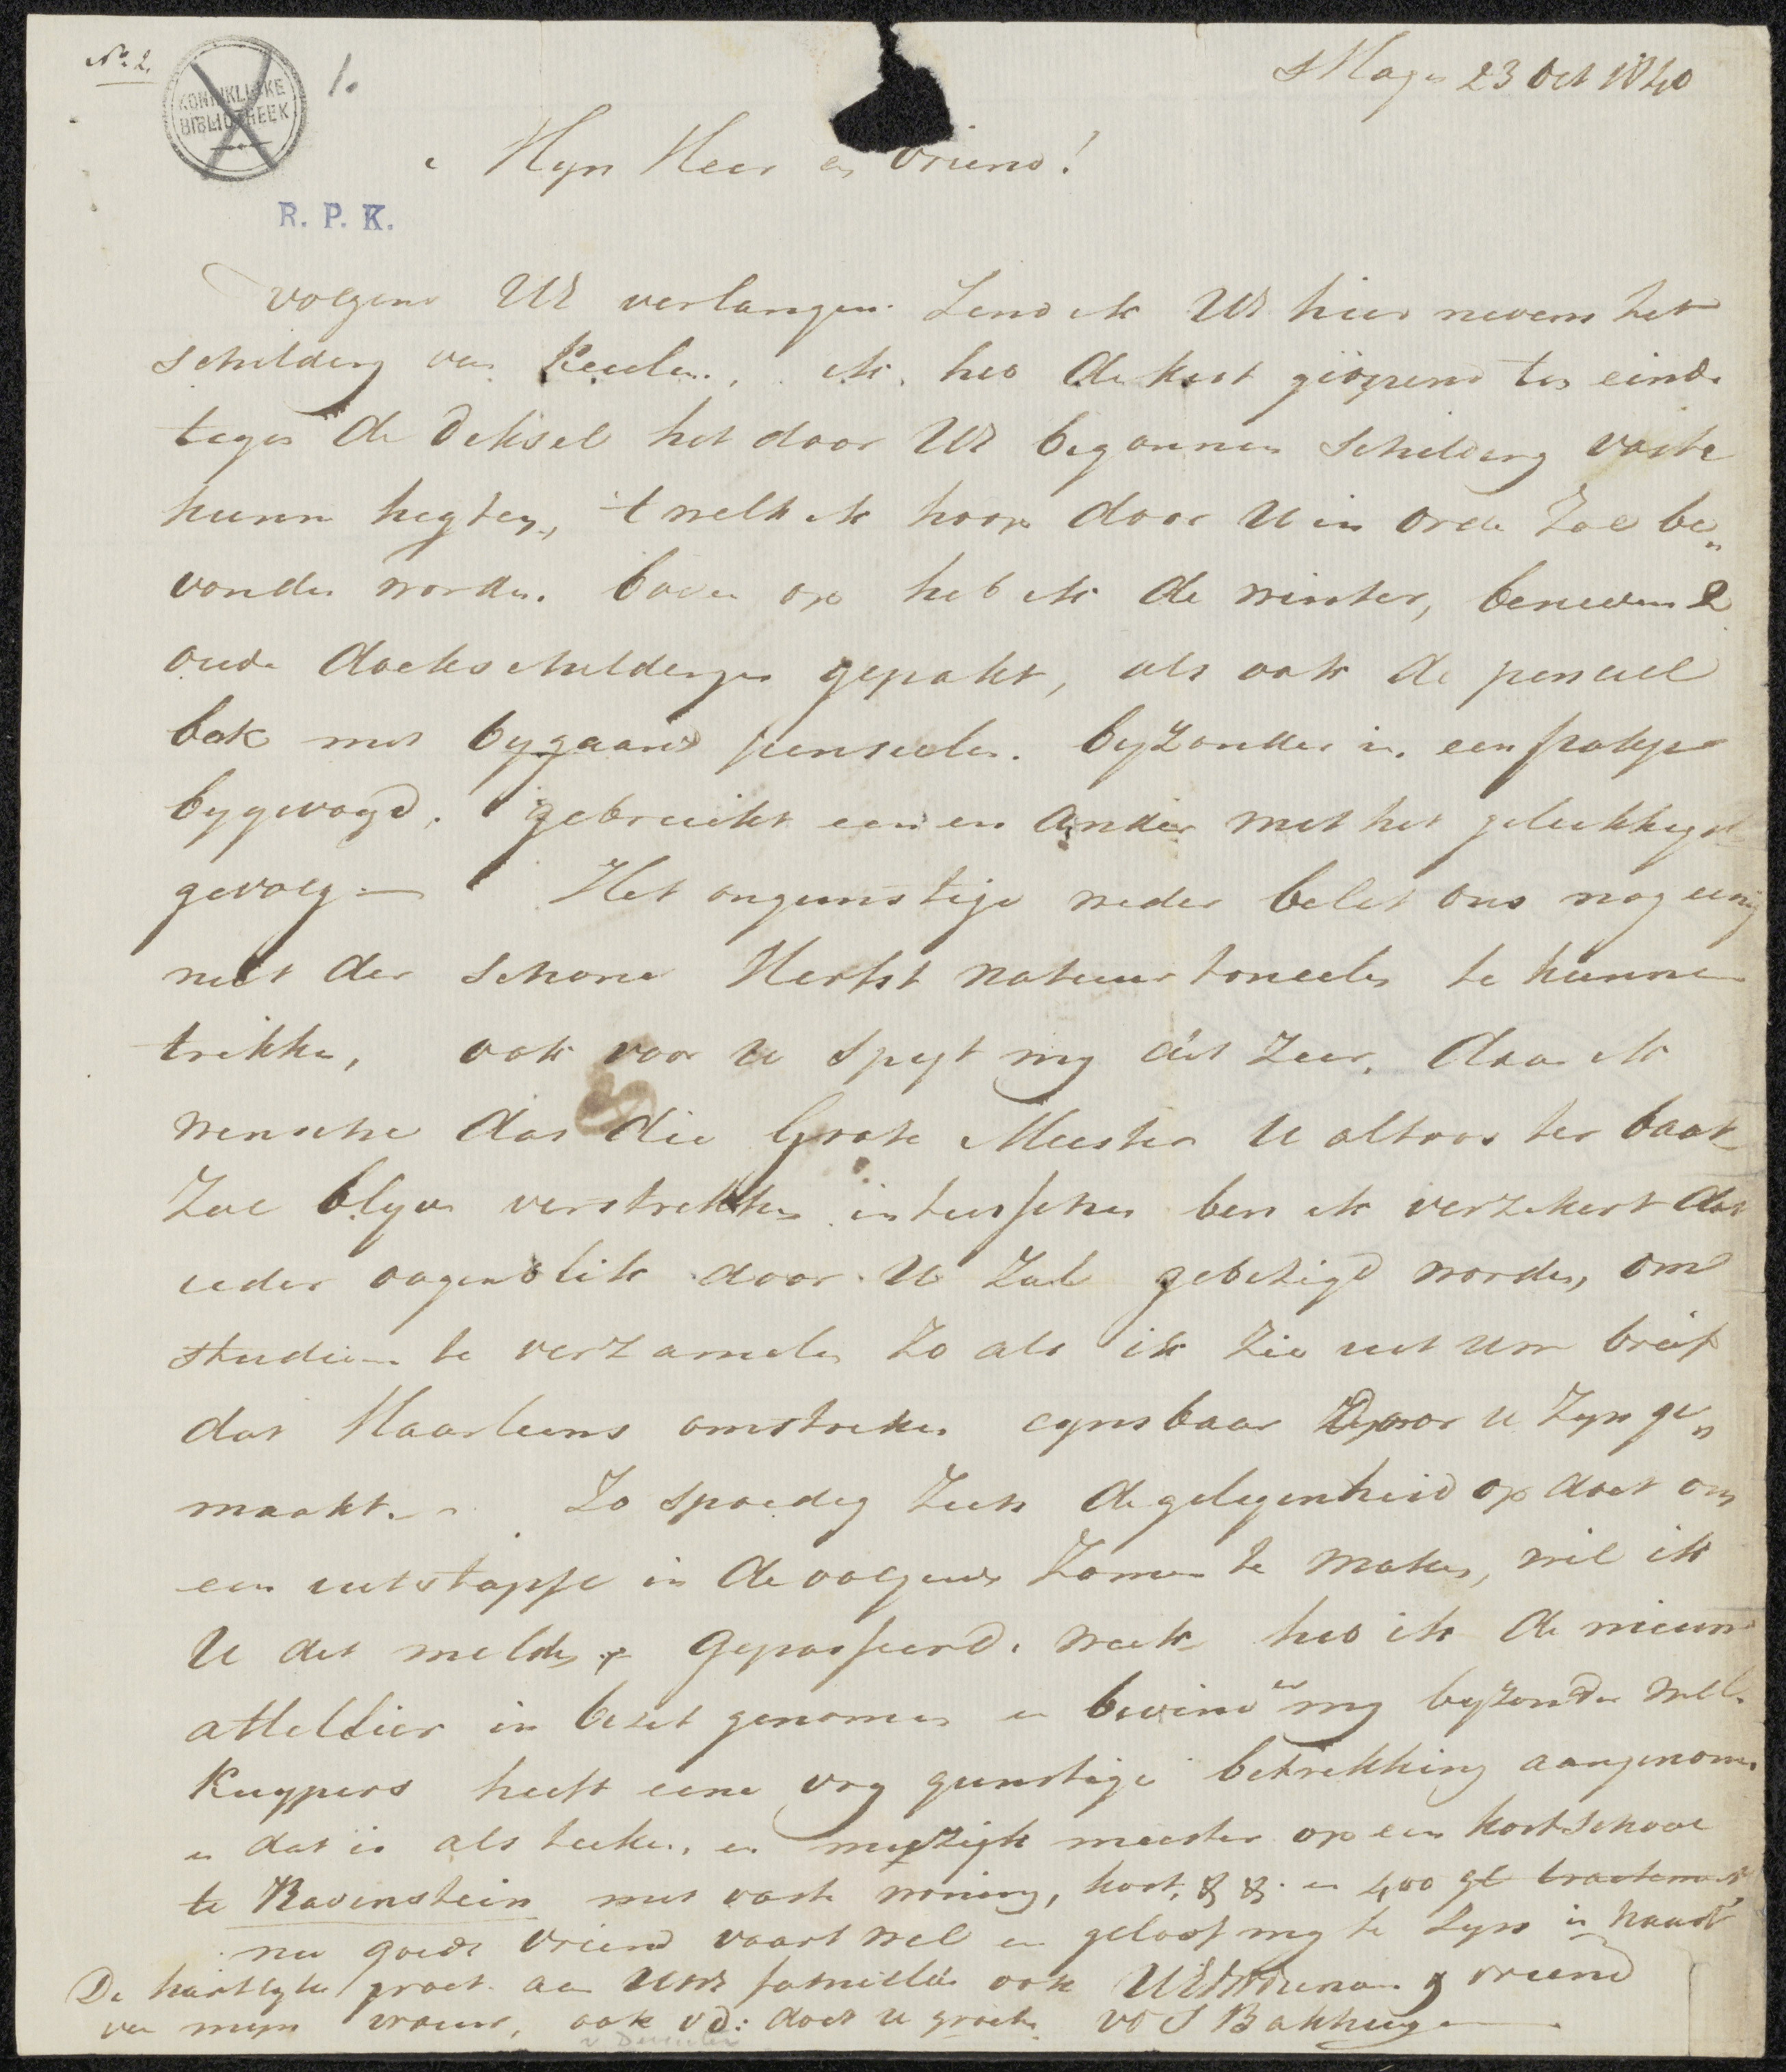 No 2.
KONINKLIJKE
BIBLIOTHEEK
1.
s Hage 23 Oct 1840
Myn Heer en Vriend!
R. P. K.
Volgend UE verlangen zend ik UE hier nevens het
schilderij van Keulen, ik heb de kist geopend ten einde
tegen de deksel het door UE begonnen schilderij vast te
kunn hegten, 't welk ik hoop door U in orde zal be„
vonden worden. boven op heb ik de winter, benevens 2
oude doekschilderijen gepakt, als ook de penseel
bak met bijgaand penseelen. byzonder in een pakje
bygevoegd. gebruikt een en ander met het gelukkigst
gevolg — Het ongunstige weder belet ons nog eenig
nut der schone Herfst natuur toneelen te kunnen
trekken, ook voor U spyt my dit zeer, daar ik
wensche dat die Groote Meester U altoos ter baat
zal blyven verstrekken intusschen ben ik verzekert dat
ieder oogenblik door U zal gebezigd worden, om
studien te verzamelen zo als ik zie uit Uw brief
dat Haarlems omstreken cynsbaar door U zyn ge„
maakt. — Zo spoedig zich de gelegenheid op doet om
een uitstapje in de volgende zomer te maken, wil ik
U dit melden. Gepasseerde week heb ik de nieuwe
attellier in bezit genomen en bevind er my byzonder wel.
Kuypers heeft eene vry gunstige betrekking aangenomen
en dat is als teeken en muzijk meester op een kostschool
te Ravenstein met vaste woning, kost, & & en 400 gl tractement,
nu goede vriend vaart wel en geloof my te zyn in haast
De hartlyke groet aan UwE familie ook UEDWDienaar & vriend
van myn vrouw, ook vD: doet U groeten VD S Bakhuyzen
v Deventer